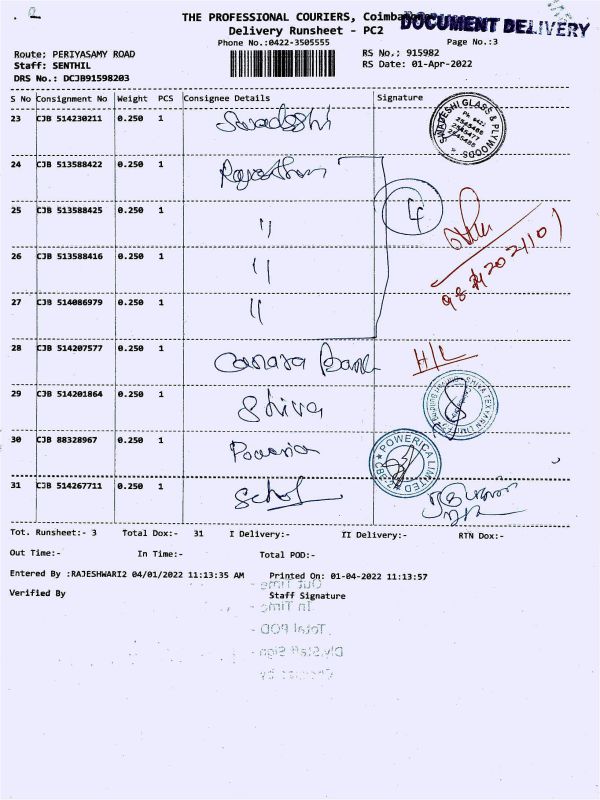 THE PROFESSIONAL COURIERS, Coimba
DOCUMENT DELIVERY
Delivery Runsheet - PC2
Phone No.:0422-3505555
Page No.:3
Route: PERIYASAMY ROAD
RS No.: 915982
Staff: SENTHIL
RS Date: 01-Apr-2022
DRS No.: DCJB91598203
S No Consignment No Weight PCS Consignee Details Signature
23 CJB 514230211 0.250 1 Swadeshi
SWADESHI GLASS & PLYWOODS
Ph 0422
2545466
2545477
2545488
24 CJB 513588422 0.250 1 Rajasthan
25 CJB 513588425 0.250 1 "
4
26 CJB 513588416 0.250 1 "
27 CJB 514086979 0.250 1 "
28 CJB 514207577 0.250 1 Canara Bank H/L
29 CJB 514201864 0.250 1 Shiva
SHIVA TEXYARN LIMITED
30 CJB 88328967 0.250 1 Powerica
POWERICA LIMITED
31 CJB 514267711 0.250 1
Tot. Runsheet:- 3 Total Dox:- 31 I Delivery:- II Delivery:- RTN Dox:-
Out Time:- In Time:- Total POD:-
Entered By :RAJESHWARI2 04/01/2022 11:13:35 AM Printed On: 01-04-2022 11:13:57
Verified By Staff Signature
Out Time
In Time -
Total POD -
Dly.Staff Sign -